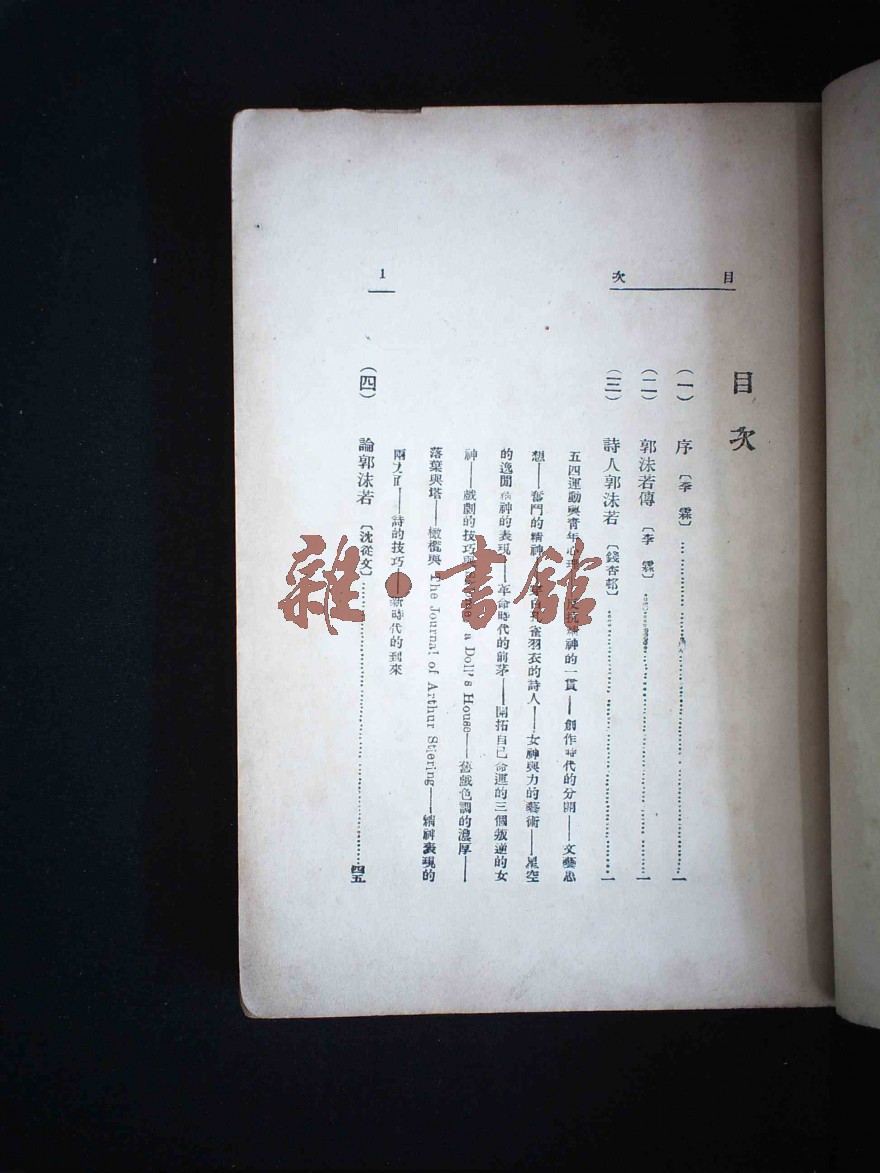 目次
1
目次
(一) 序〔李霖〕……一
(二) 郭沫若傳〔李霖〕……一
(三) 詩人郭沫若〔錢杏邨〕……一
五四運動與青年心理 反抗精神的一貫——創作時代的分開——文藝思
想——奮鬥的精神 孔雀羽衣的詩人——女神與力的藝術——星空
的逸閒精神的表現——革命時代的前茅——開拓自己命運的三個叛逆的女
神——戲劇的技巧與 a Doll's House——舊戲色調的濃厚——
落葉與塔——橄欖與 The Journal of Arthur Stiering——精神表現的
兩方面——詩的技巧——新時代的到來
(四) 論郭沫若〔沈從文〕……四五
雜·書館